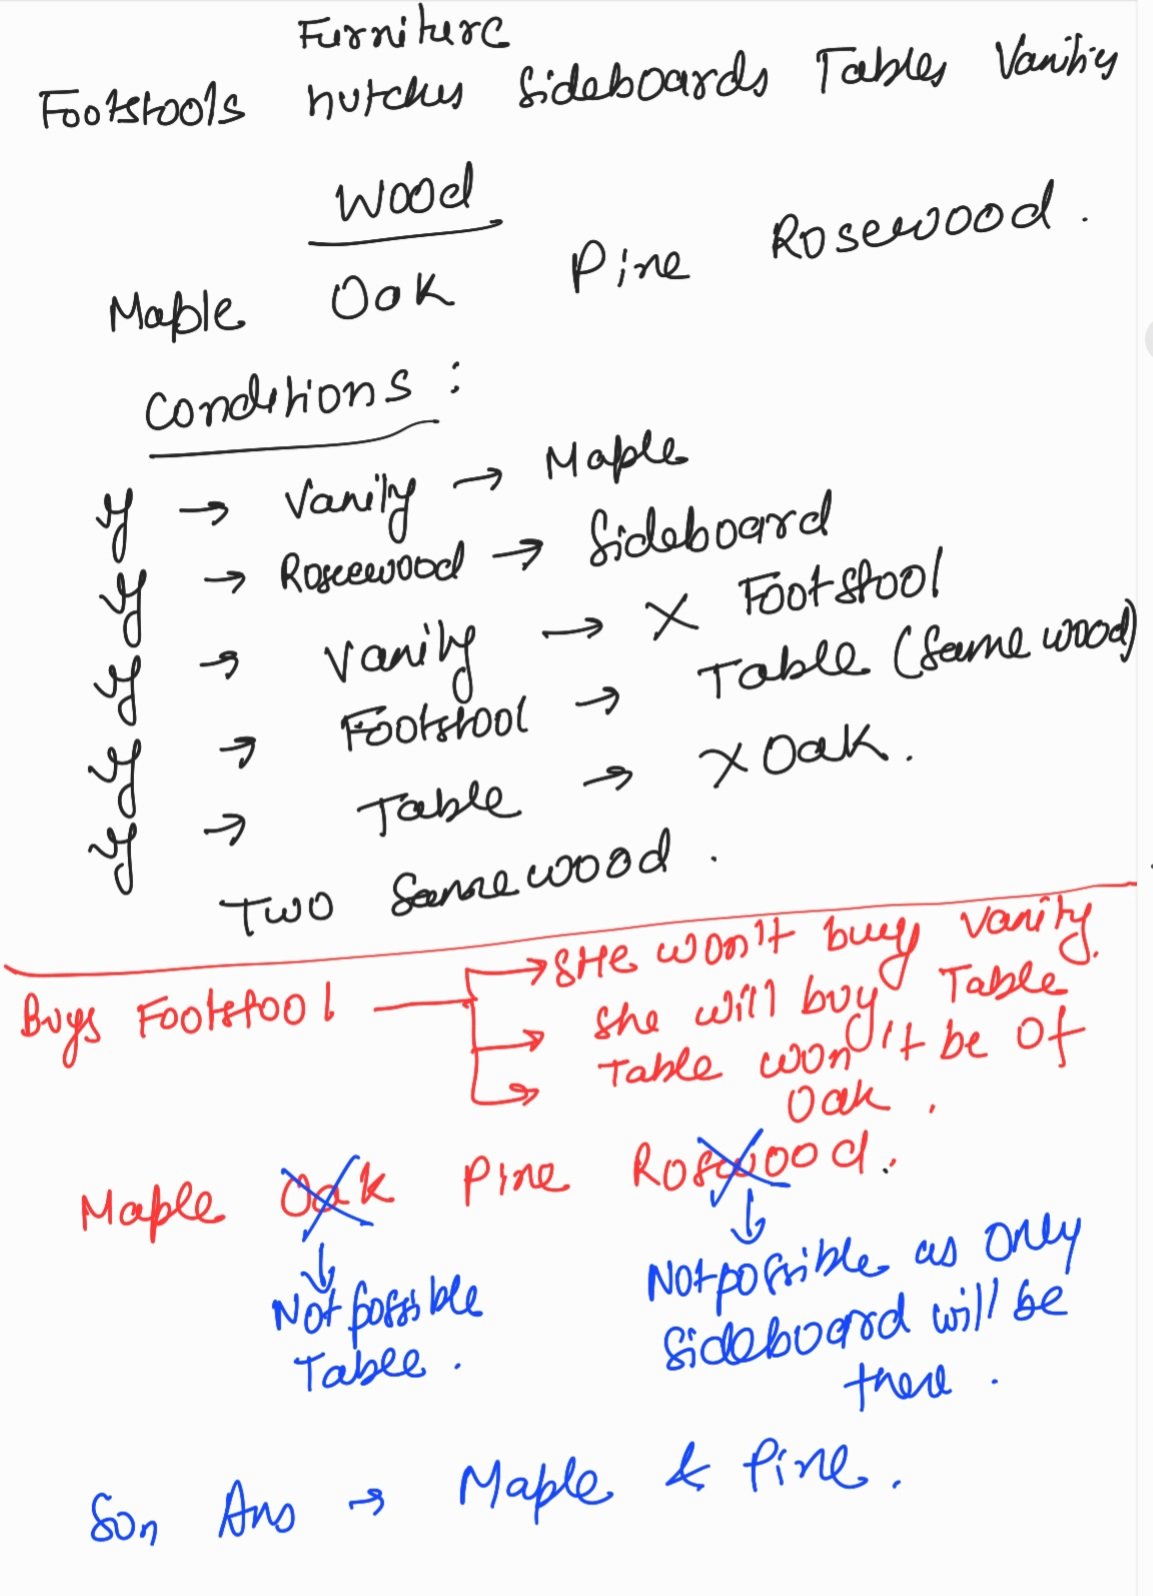 Furniture
Footstools hutches Sideboards Tables Vanity
Wood
Maple Oak Pine Rosewood.
Conditions :
y → Vanity → Maple
y → Rosewood → Sideboard
y → Vanity → X Footstool
y → Footstool → Table (Same wood)
y → Table → X Oak.
Two Same wood.
Buys Footstool → SHe won't buy Vanity.
→ She will buy Table
→ Table won't be of
Oak.
Maple Oak Pine Rosewood.
↓ ↓
Not possible Not possible as Only
Table. Sideboard will be
there.
Son Ans → Maple & Pine.